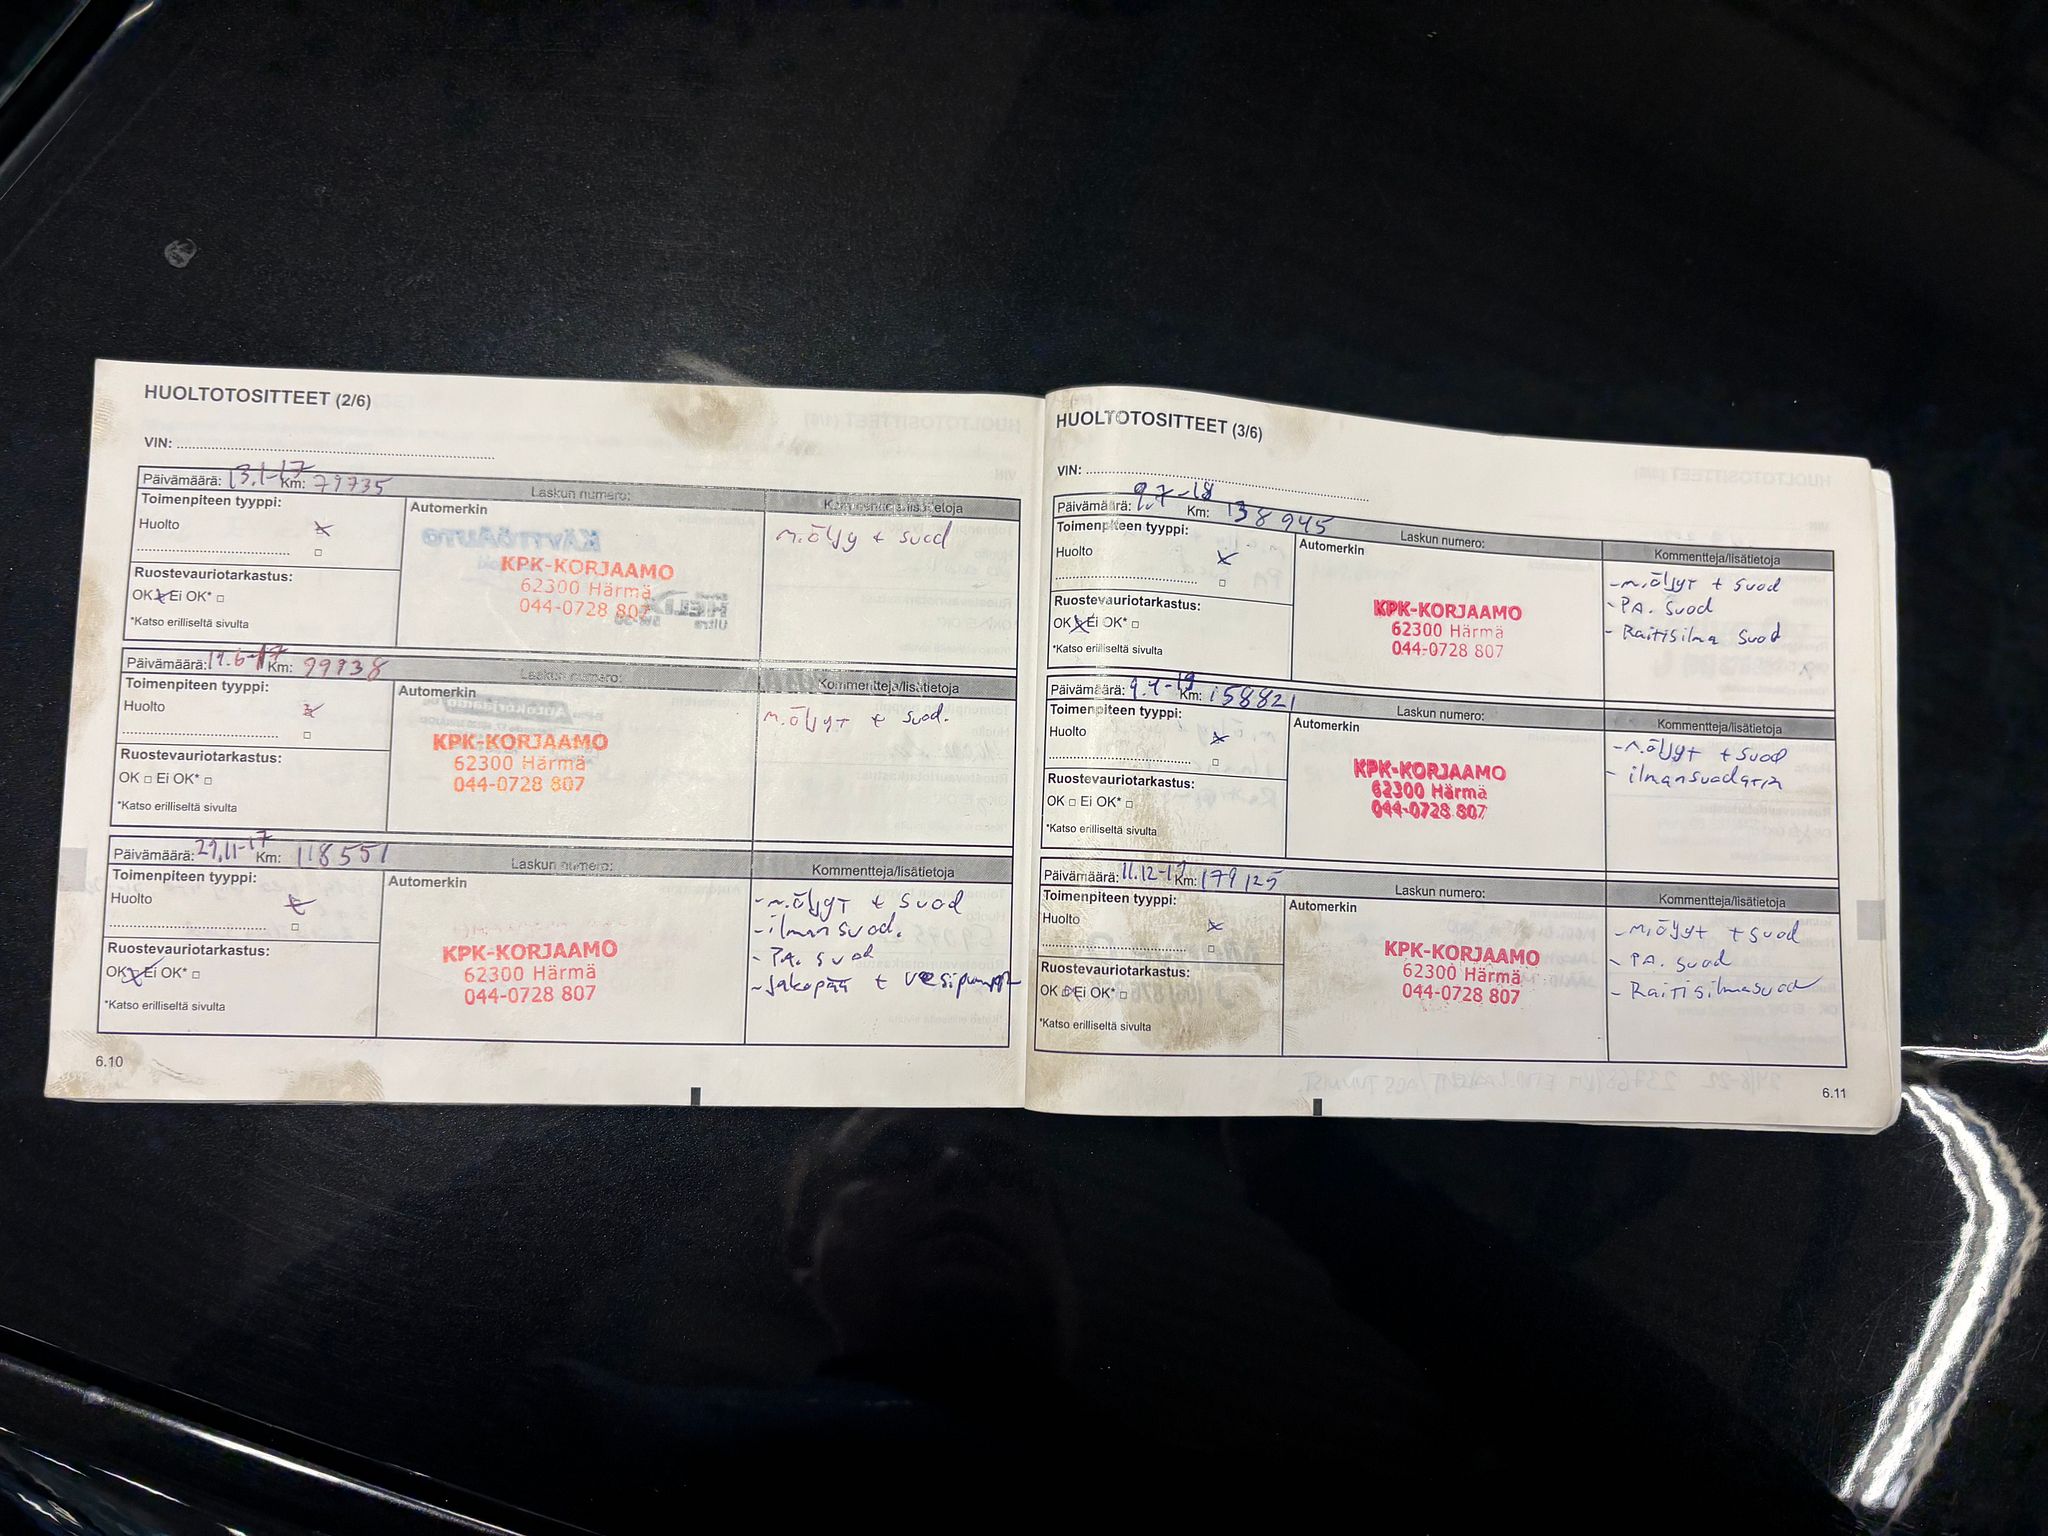 HUOLTOTOSITTEET (2/6)
VIN:
Päivämäärä: 13.1-17 Km: 79735 Laskun numero:
Toimenpiteen tyyppi:
Automerkin
Kommentteja/lisätietoja
Huolto
m.öljy + suod
KPK-KORJAAMO
62300 Härmä
044-0728 807
Ruostevauriotarkastus:
OK Ei OK*
*Katso erilliseltä sivulta
Päivämäärä: Km: 99938 Laskun numero:
Toimenpiteen tyyppi:
Automerkin
Kommentteja/lisätietoja
Huolto
m.öljyt + suod.
KPK-KORJAAMO
62300 Härmä
044-0728 807
Ruostevauriotarkastus:
OK Ei OK*
*Katso erilliseltä sivulta
Päivämäärä: 29.11-17 Km: 118551 Laskun numero:
Toimenpiteen tyyppi:
Automerkin
Kommentteja/lisätietoja
Huolto
- m.öljyt + suod
- ilman suod.
- PA. suod
- Jakopää + vesipumppu
KPK-KORJAAMO
62300 Härmä
044-0728 807
Ruostevauriotarkastus:
OK Ei OK*
*Katso erilliseltä sivulta
6.10
HUOLTOTOSITTEET (3/6)
VIN:
Päivämäärä: 9.7-18 Km: 138945 Laskun numero:
Toimenpiteen tyyppi:
Automerkin
Kommentteja/lisätietoja
Huolto
- m.öljyt + suod
- PA. suod
- Raitisilma suod
KPK-KORJAAMO
62300 Härmä
044-0728 807
Ruostevauriotarkastus:
OK Ei OK*
*Katso erilliseltä sivulta
Päivämäärä: Km: 158821 Laskun numero:
Toimenpiteen tyyppi:
Automerkin
Kommentteja/lisätietoja
Huolto
- m.öljyt + suod
- ilmansuodatin
KPK-KORJAAMO
62300 Härmä
044-0728 807
Ruostevauriotarkastus:
OK Ei OK*
*Katso erilliseltä sivulta
Päivämäärä: 11.12-19 Km: 179125 Laskun numero:
Toimenpiteen tyyppi:
Automerkin
Kommentteja/lisätietoja
Huolto
- m.öljyt + suod
- PA. suod
- Raitisilmasuod
KPK-KORJAAMO
62300 Härmä
044-0728 807
Ruostevauriotarkastus:
OK Ei OK*
*Katso erilliseltä sivulta
6.11